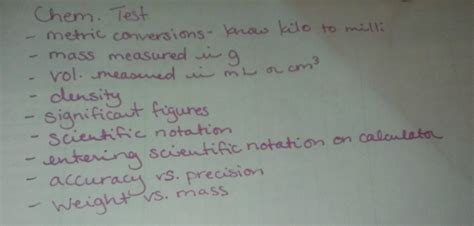 Chem. Test
- metric conversions - know kilo to milli
- mass measured in g
- vol. measured in mL or cm³
- density
- significant figures
- scientific notation
- entering scientific notation on calculator
- accuracy vs. precision
- weight vs. mass